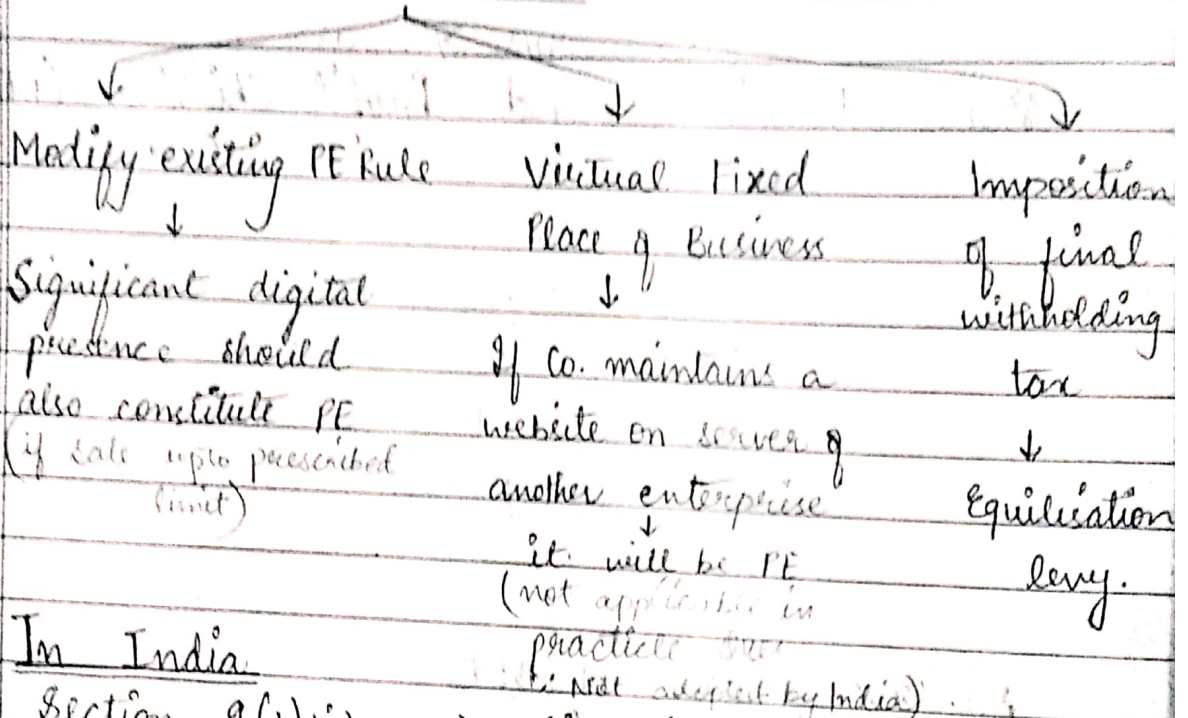 Modify existing PE Rule
↓
Significant digital
presence should
also constitute PE
(if sale upto prescribed
limit)
Virtual Fixed
Place of Business
↓
If Co. maintains a
website on server of
another enterprise
↓
it will be PE
(not applicable in
practice
Not adopted by India)
Imposition
of final
withholding
tax
↓
Equilisation
levy.
In India
Section